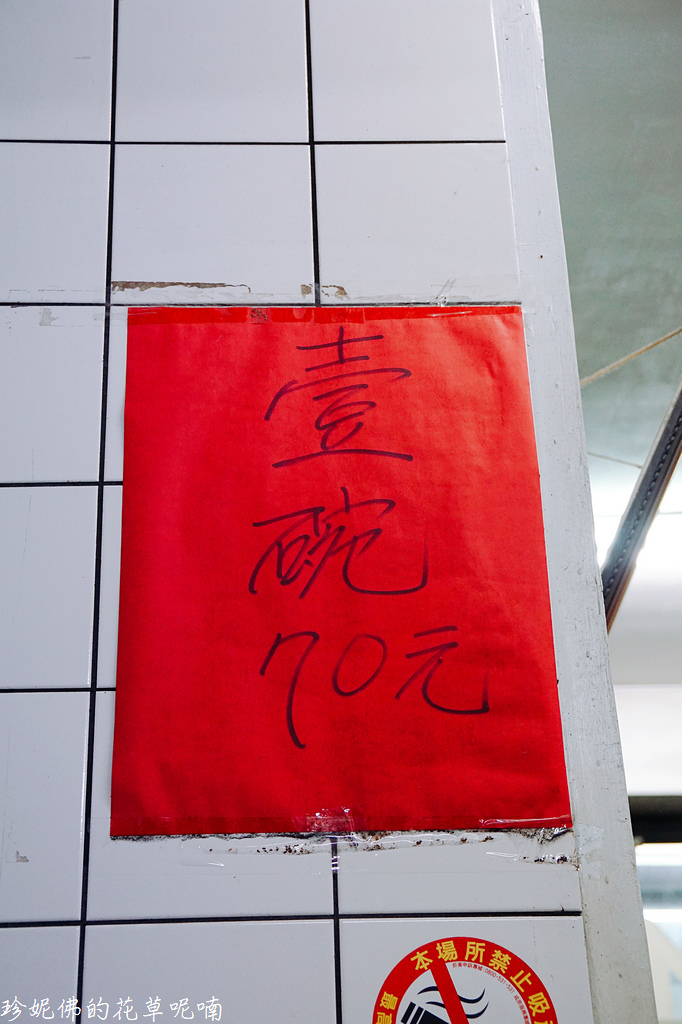 壹
碗
70元
本場所禁止吸
珍妮佛的花草呢喃